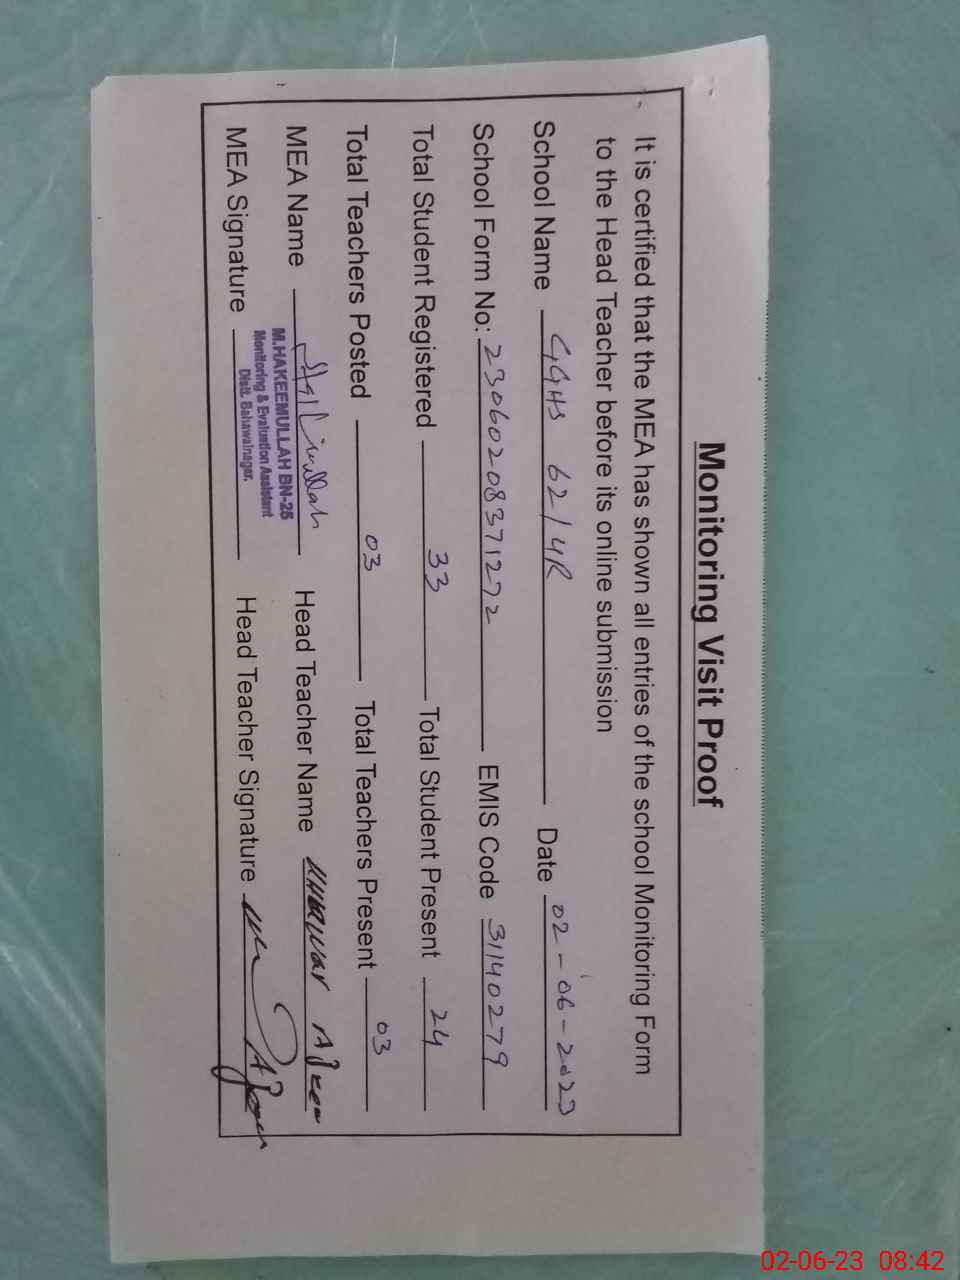 Monitoring Visit Proof
It is certified that the MEA has shown all entries of the school Monitoring Form
to the Head Teacher before its online submission
School Name GGHS 62/4R Date 02-06-2023
School Form No: 23060208371272 EMIS Code 31140279
Total Student Registered 33 Total Student Present 24
Total Teachers Posted 03 Total Teachers Present 03
MEA Name Head Teacher Name
M.HAKEEMULLAH BN-25
Monitoring & Evaluation Assistant
Distt. Bahawalnagar.
MEA Signature Head Teacher Signature
02-06-23 08:42